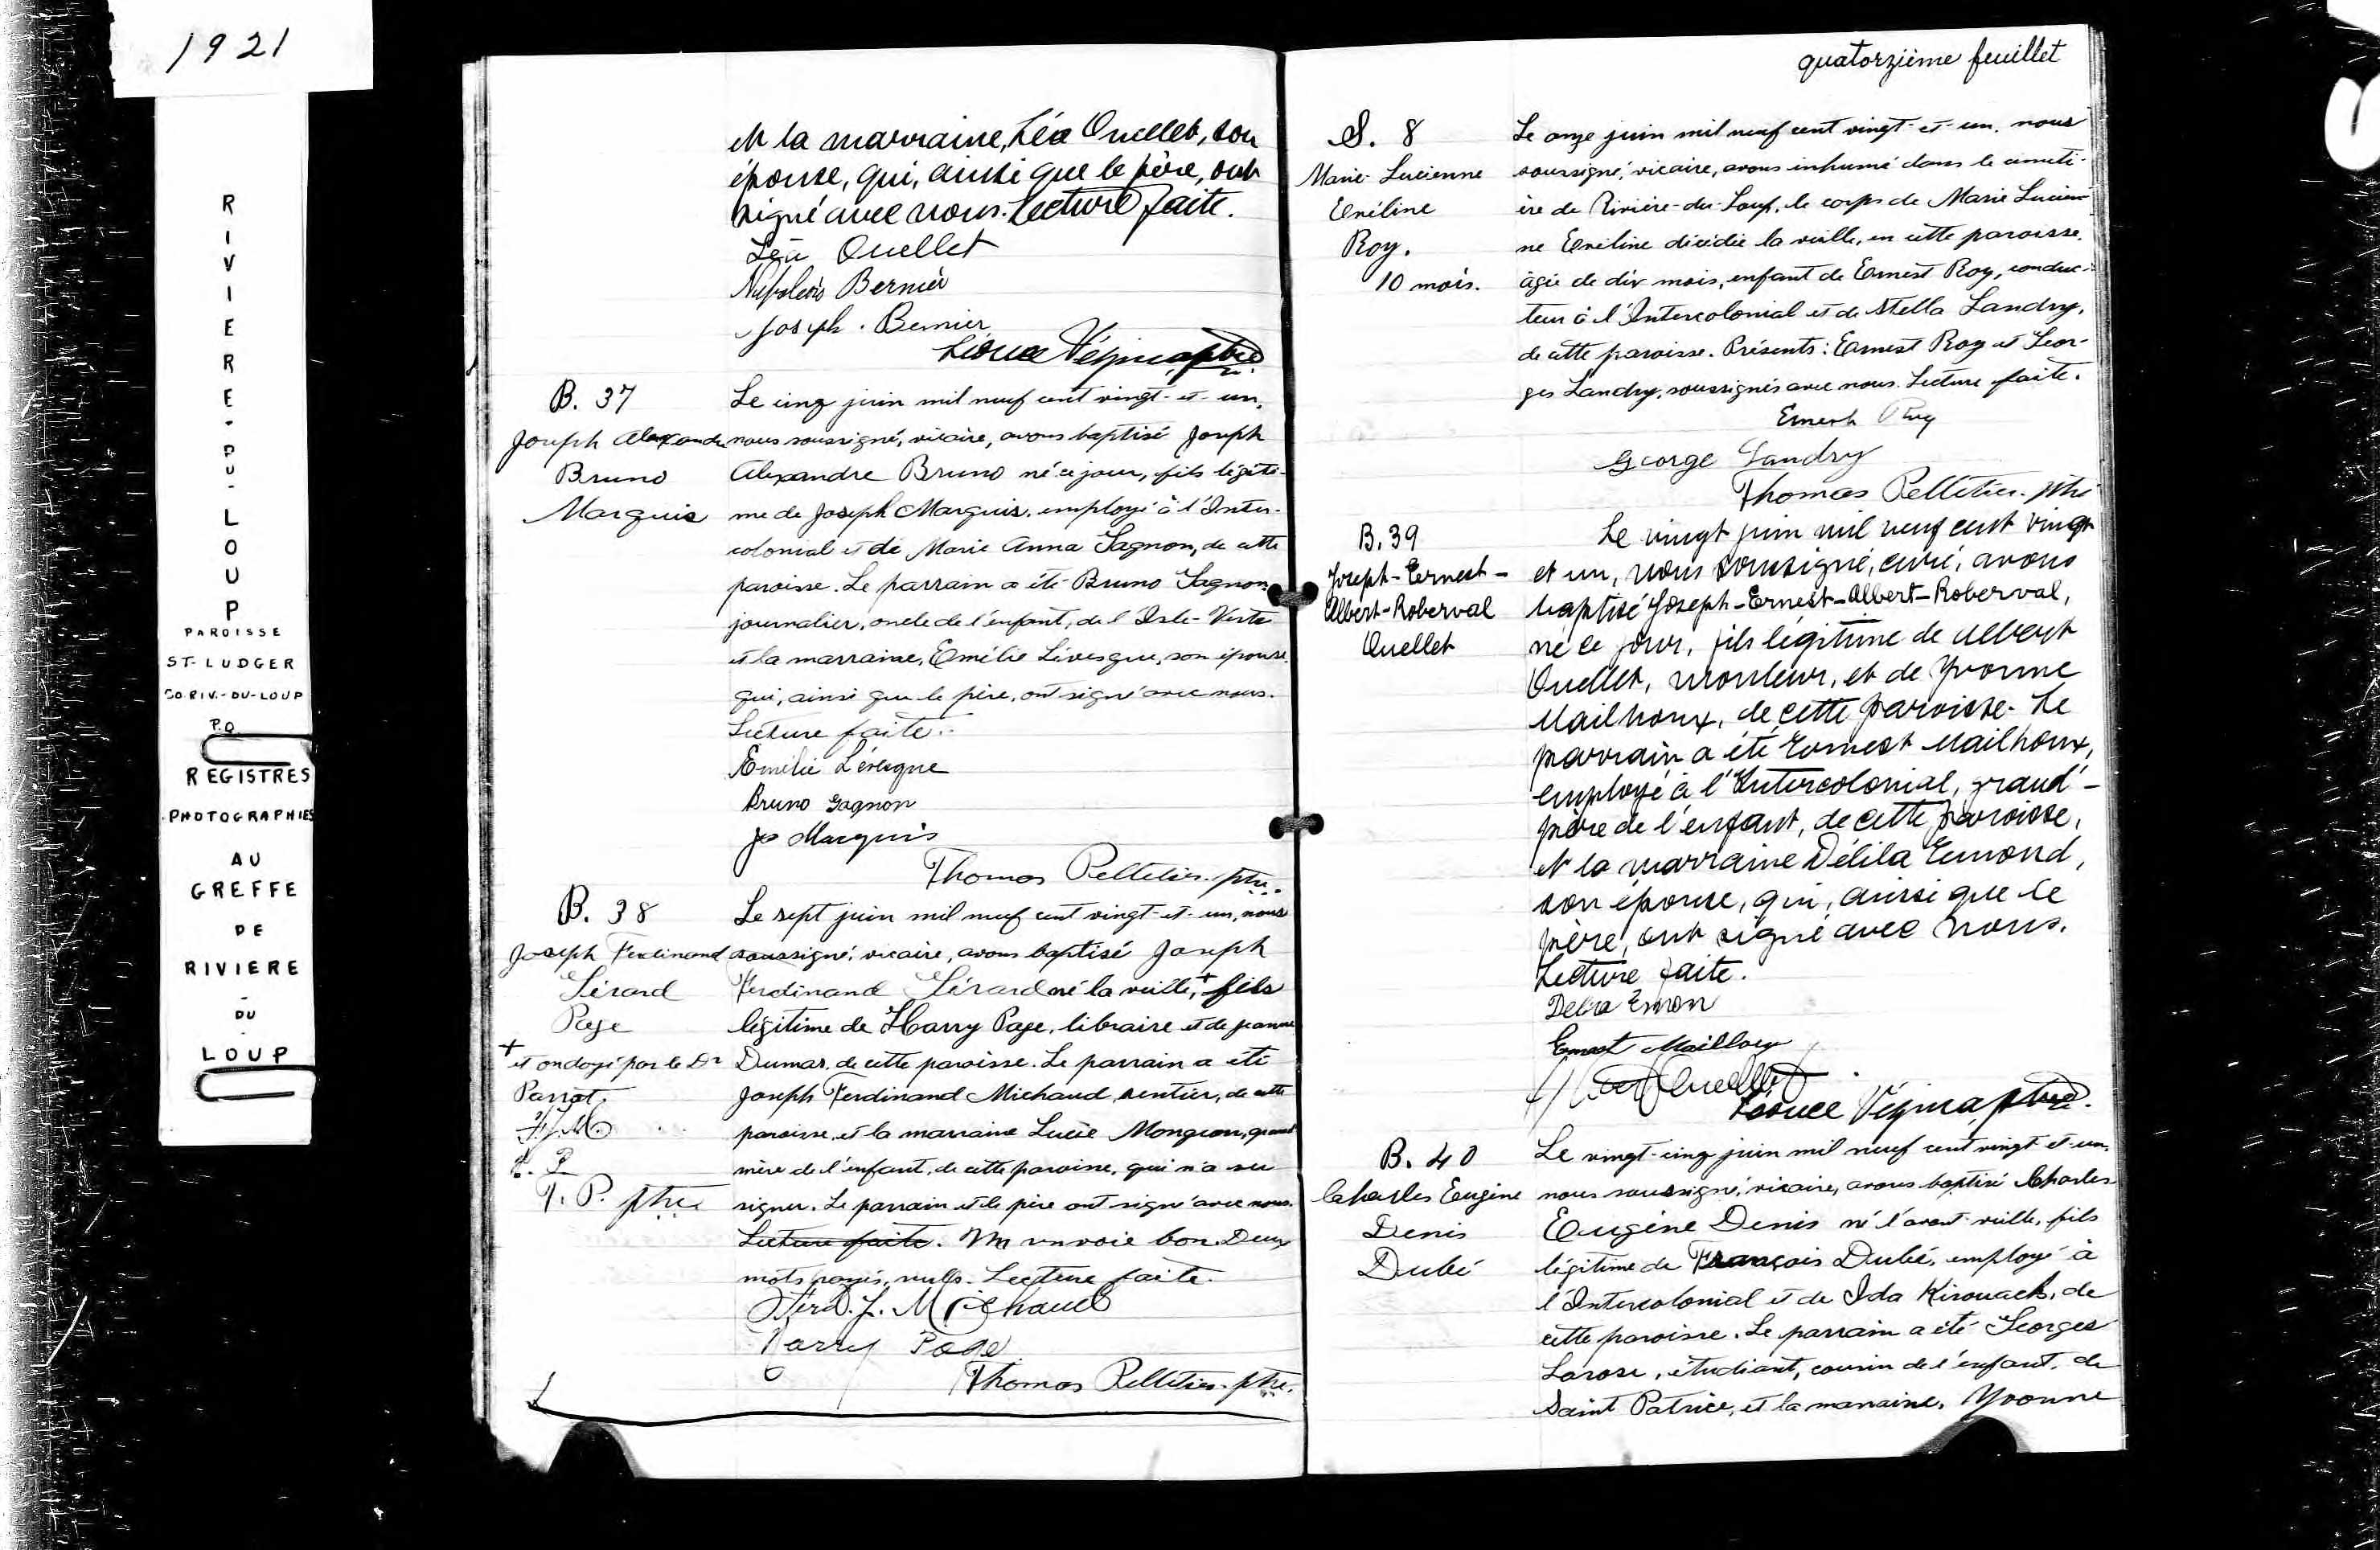 1921
RIVIERE-DU-LOUP
PAROISSE
ST-LUDGER
CO. RIV.-DU-LOUP
P.Q.
REGISTRES
PHOTOGRAPHIES
AU
GREFFE
DE
RIVIERE
-
DU
-
LOUP
et la marraine, Léa Ouellet, son
épouse, qui, ainsi que le père, ont
signé avec nous. Lecture faite.
Léa Ouellet
Napoléon Bernier
Joseph. Bernier
Léonce Vézina, ptre
B. 37
Joseph Alexandre
Bruno
Marquis
Le cinq juin mil neuf cent vingt-et-un,
nous soussigné, vicaire, avons baptisé Joseph
Alexandre Bruno né ce jour, fils légiti-
me de Joseph Marquis, employé à l'Inter-
colonial et de Marie Anna Gagnon, de cette
paroisse. Le parrain a été Bruno Gagnon
journalier, oncle de l'enfant, de l'Isle-Verte
et la marraine, Emélie Lévesque, son épouse
qui, ainsi que le père, ont signé avec nous.
Lecture faite.
Emélie Lévesque
Bruno Gagnon
Jos Marquis
Thomas Pelletier. ptre.
B. 38
Joseph Ferdinand
Gérard
Page
+ et ondoyé par le Dr
Parrot.
F.J.M.
H. P.
T. P. ptre
Le sept juin mil neuf cent vingt-et-un, nous
soussigné, vicaire, avons baptisé Joseph
Ferdinand Gérard né la veille,+ fils
légitime de Harry Page, libraire et de Jeanne
Dumas, de cette paroisse. Le parrain a été
Joseph Ferdinand Michaud, rentier, de cette
paroisse, et la marraine Lucie Mongeon, grand
mère de l'enfant, de cette paroisse, qui n'a su
signer. Le parrain et le père ont signé avec nous.
Lecture faite. Un renvoie bon. Deux
mots rayés, nuls. Lecture faite.
Ferd. J. Michaud
Harry Page
Thomas Pelletier. ptre.
quatorzième feuillet
S. 8
Marie-Lucienne
Eveline
Roy.
10 mois.
Le onze juin mil neuf cent vingt-et-un, nous
soussigné, vicaire, avons inhumé dans le cimeti-
ère de Rivière-du-Loup, le corps de Marie Lucien-
ne Eveline décédée la veille, en cette paroisse,
âgée de dix mois, enfant de Ernest Roy, conduc-
teur à l'Intercolonial et de Stella Landry,
de cette paroisse. Présents: Ernest Roy et Geor-
ges Landry, soussignés avec nous. Lecture faite.
Ernest Roy
George Landry
Thomas Pelletier. ptre
B. 39
Joseph-Ernest-
Albert-Roberval
Ouellet
Le vingt juin mil neuf cent vingt
et un, nous soussigné, curé, avons
baptisé Joseph-Ernest-Albert-Roberval,
né ce jour, fils légitime de Albert
Ouellet, mouleur, et de Yvonne
Mailhoux, de cette paroisse. Le
parrain a été Ernest Mailhoux,
employé à l'Intercolonial, grand'-
père de l'enfant, de cette paroisse,
et la marraine Délila Emond,
son épouse, qui, ainsi que le
père, ont signé avec nous.
Lecture faite.
Emon
Ernest Mailloux
Ouellet
Léonce Vézina, ptre.
B. 40
Charles Eugène
Denis
Dubé
Le vingt-cinq juin mil neuf cent vingt et un,
nous soussigné, vicaire, avons baptisé Charles
Eugène Denis né l'avant-veille, fils
légitime de François Dubé, employé à
l'Intercolonial et de Ida Kirouack, de
cette paroisse. Le parrain a été Georges
Larose, étudiant, cousin de l'enfant, de
Saint Patrice, et la marraine, Yvonne